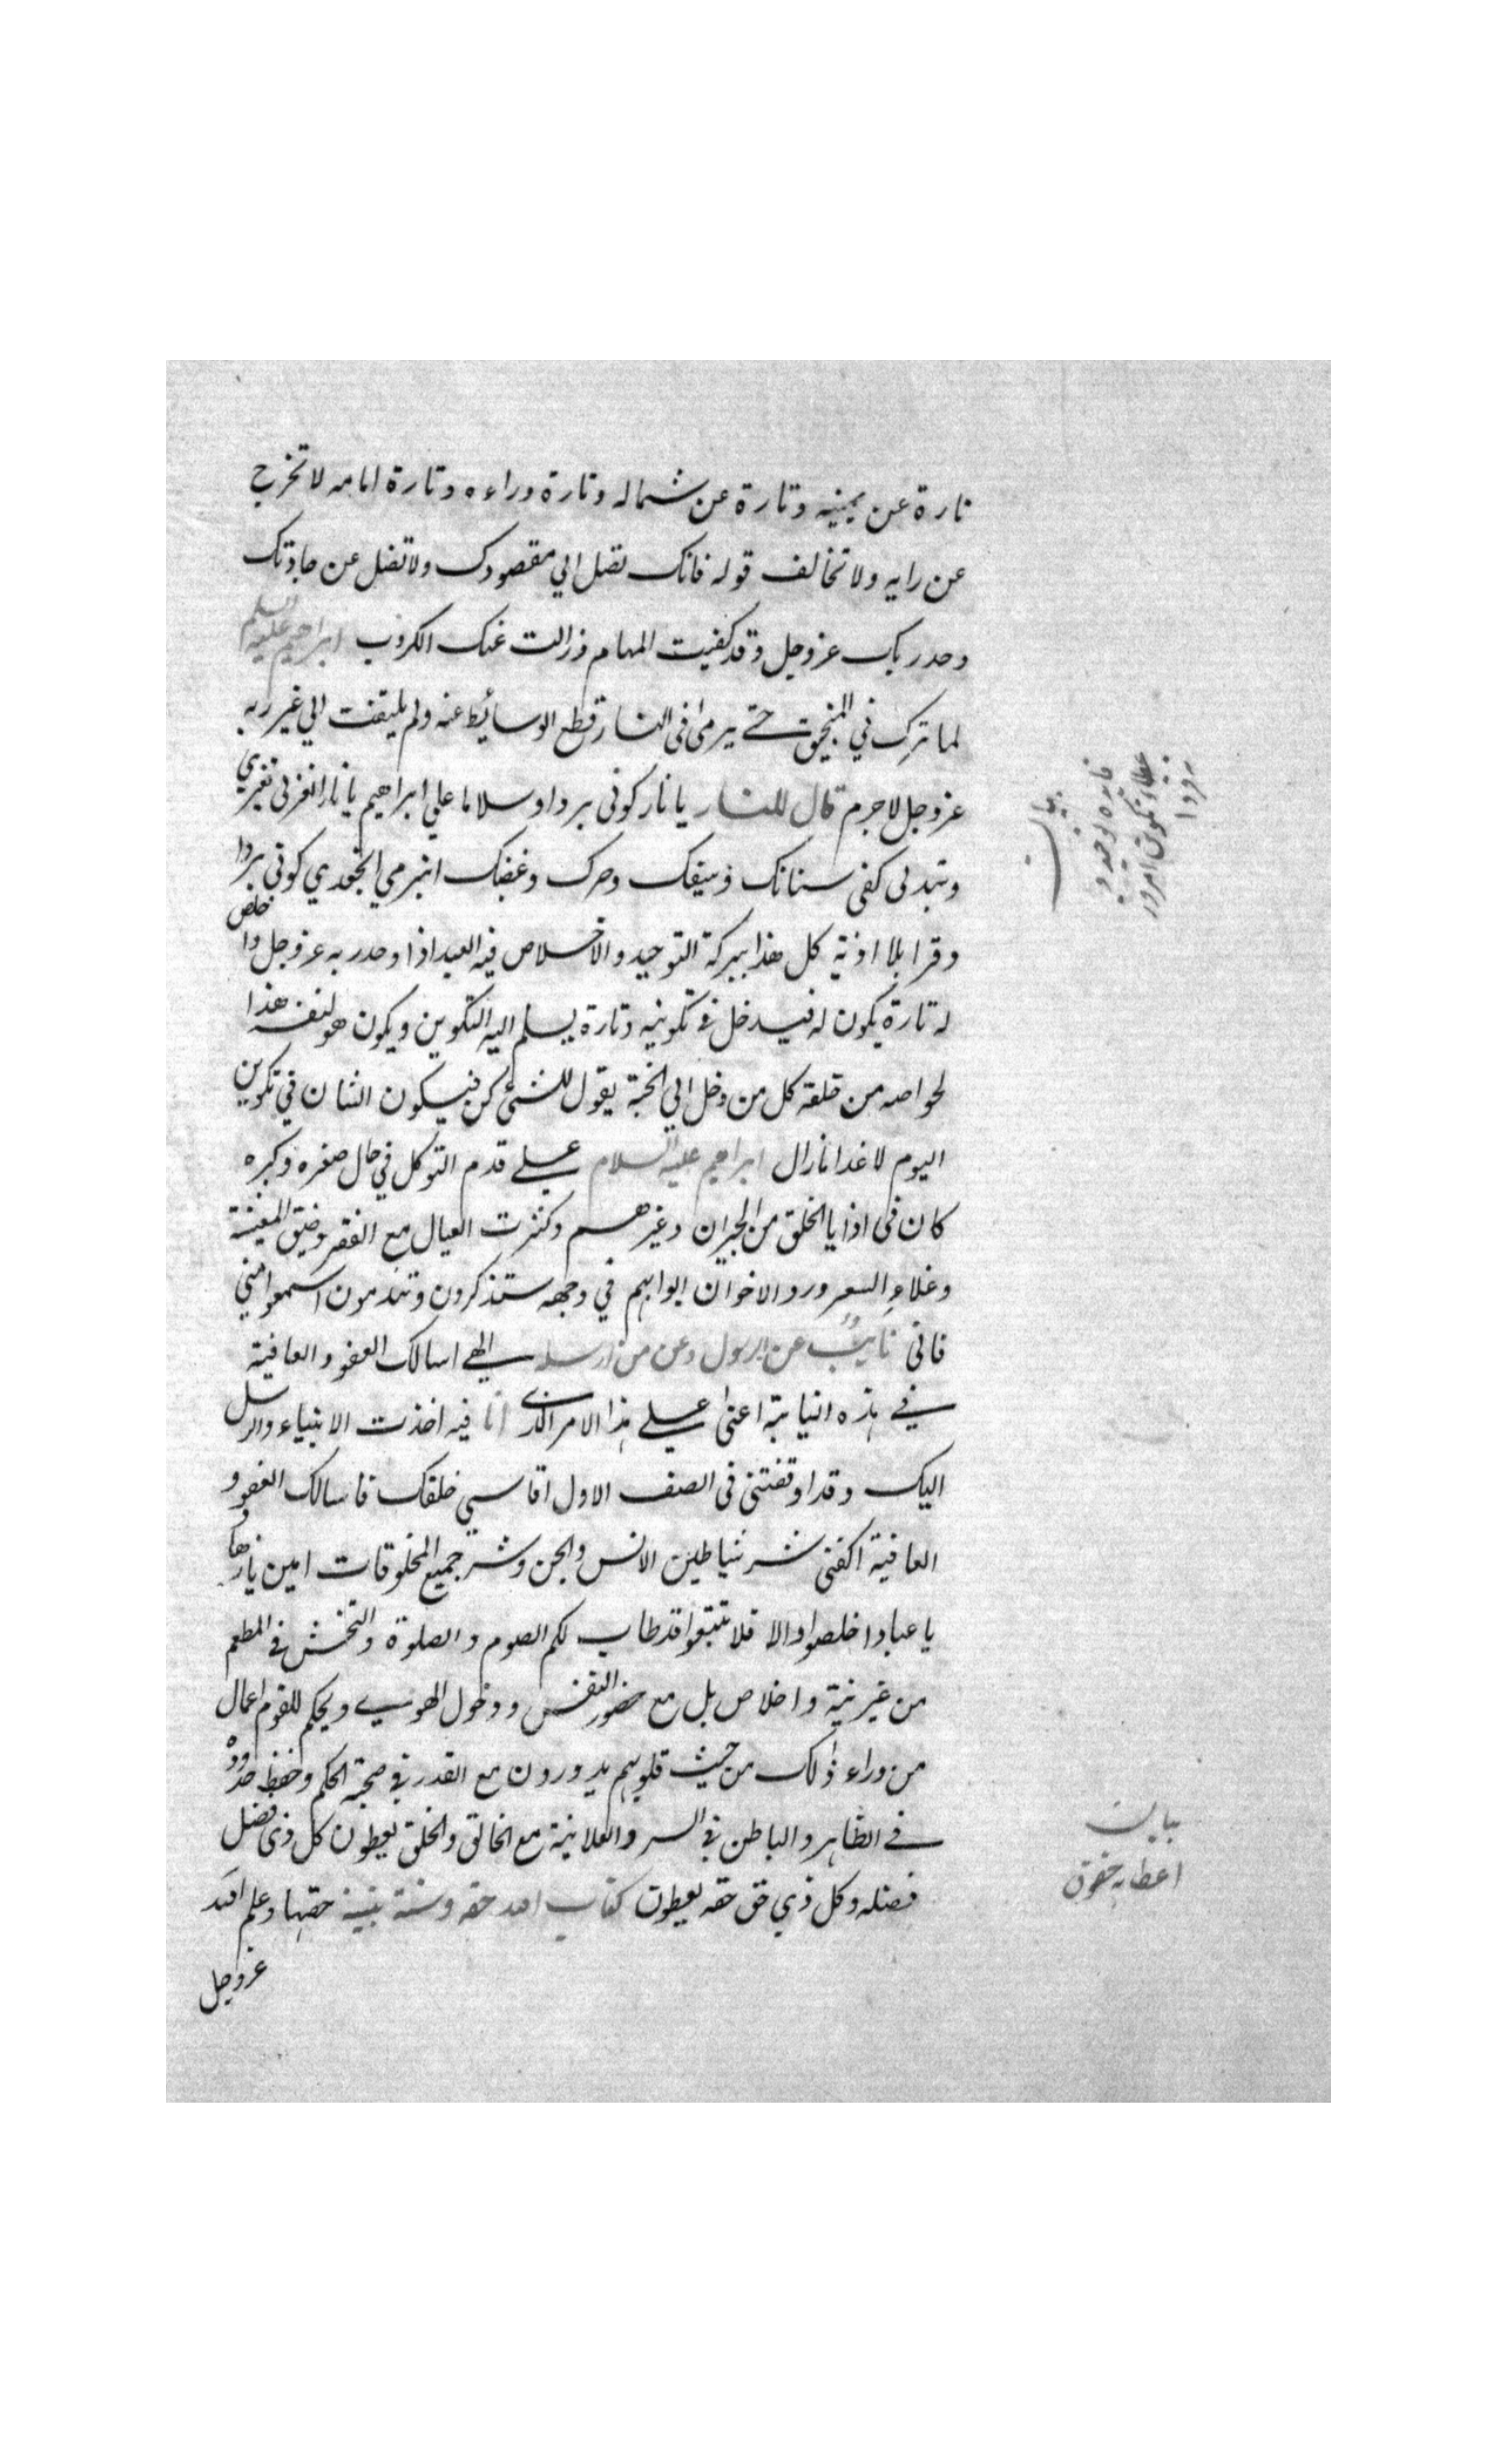 تارة عن يمينه وتارة عن شماله وتارة وراءه وتارة امامه لا تخرج
عن رايه ولا تخالف قوله فانك تصل الي مقصودك ولا تضل عن جادتك
وحد ربك عز وجل وقد كفيت المهام وزالت عنك الكروب ابراهيم عليه السلم
لما ترك في المنجيق حتے يرمی فی النار قطع الوسائط عنه ولم يلتفت الي غير ربه
عز وجل لاجرم قال للنار يا نار كوني بردا وسلاما علي ابراهيم يا نار انعزلي تغيري
وتبدلي كفی سنانك وسيفك وحرك وغضبك انبرمي الجعدي كوني بردا
وقرا بلا اذية كل هذا ببركة التوحيد والاخلاص فيه العبد اذا وحد ربه عز وجل واخلص
له تارة يكون له فيدخل في تكوينه وتارة يسلم اليه التكوين ويكون هو لنفسه هذا
لخواصه من خلقه كل من دخل الي الجنة يقول للشئ كن فيكون الشان في تكوين
اليوم لا غدا مازال ابراهيم عليه السلام علے قدم التوكل في حال صغره وكبره
كان فی اذايا الخلق من الجيران وغيرهم وكثرت العيال مع الفقر وضيق المعيشة
وغلاء السعر ورد الاخوان ابوابهم في وجهه ستذكرون وتندمون اسمعوا مني
فانی نايب عن الرسول وعن من ارسله الهے اسالك العفو والعافية
في هذه النيابة اعنی علے هذا الامر الذی انا فيه اخذت الانبياء والرسل
اليك وقد اوقفتنی فی الصف الاول اقاسي خلقك فاسالك العفو و
العافية اكفنی شر شياطين الانس والجن وشر جميع المخلوقات امين
يا عباد اخلصوا والا فلا تتبعوا قد طاب لكم الصوم والصلوة والتخشن في المطعم
من غير نية واخلاص بل مع حضور النفس ودخول الهوي ويحكم للقوم اعمال
من وراء ذلك من حيث قلوبهم يدورون مع القدر في صحبة الحكم وحفظ حدوده
في الظاهر والباطن في السر والعلانية مع الخالق والخلق يعطون كل ذی فضل
فضله وكل ذي حق حقه يعطون كتاب الله حقه وسنة نبيه حقها وعلم الله
عز وجل
بيان
فايده توحيد و
عطاء تكوين امروز
نه فردا
بيان
اعطاء حقوق